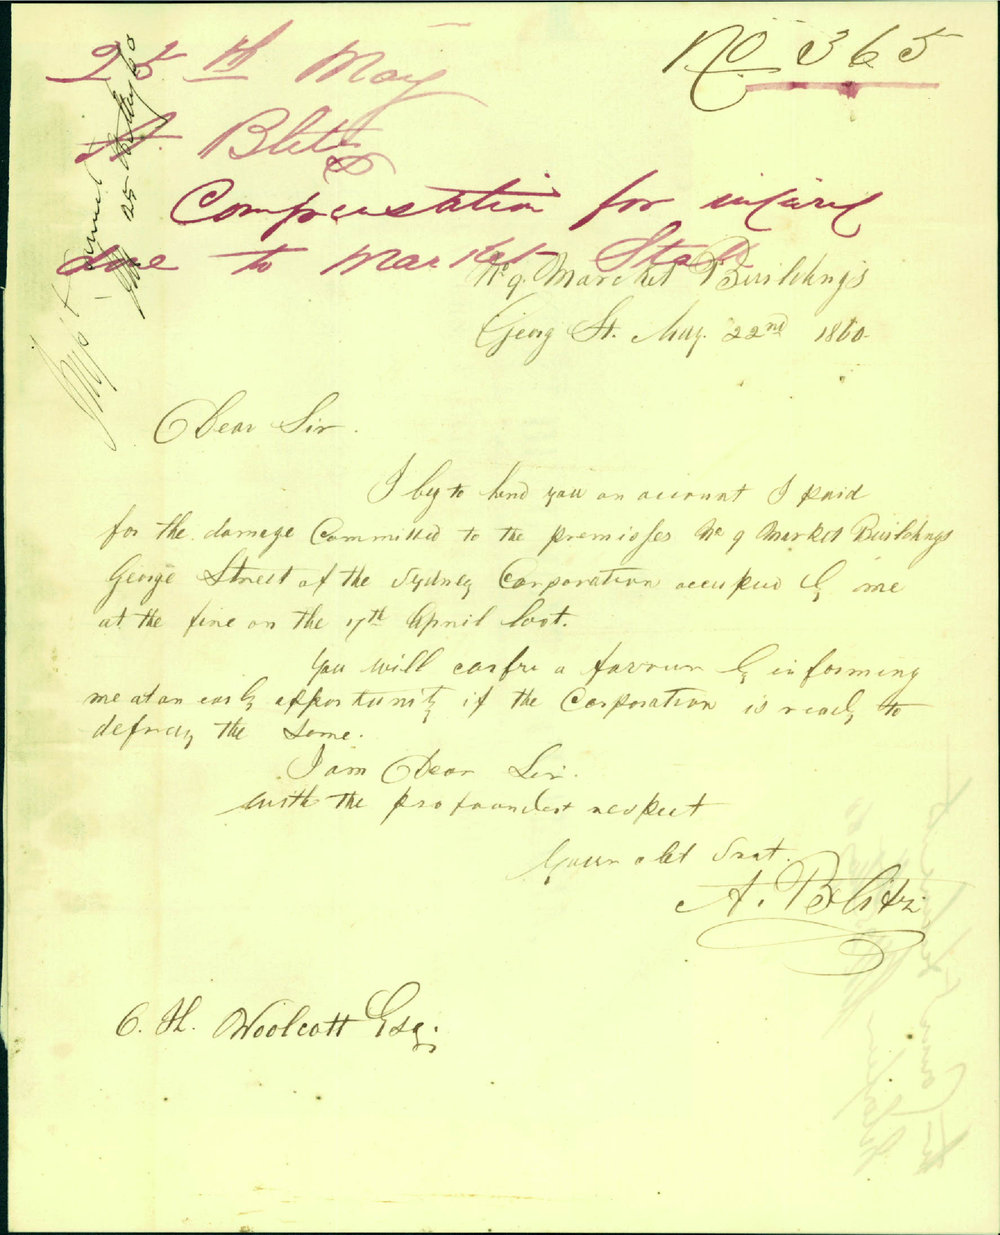 No 365
25th May
A Blitz
Compensation for injury
done to Market Stall
No 9. Marcket Buildings
Georg St. May. 22nd 1860.
Dear Sir.
I beg to hend you an account I paid
for the damage Committed to the premisses No 9 Market Buildings
George Street of the Sydney Corporation occupied by me
at the fire on the 17th April last.
You will confer a favour by informing
me at an early opportunity if the Corporation is ready to
defray the same.
I am Dear Sir.
with the profoundest respect
Your obt Svat.
A. Blitz
C. H. Woolcott Esq.